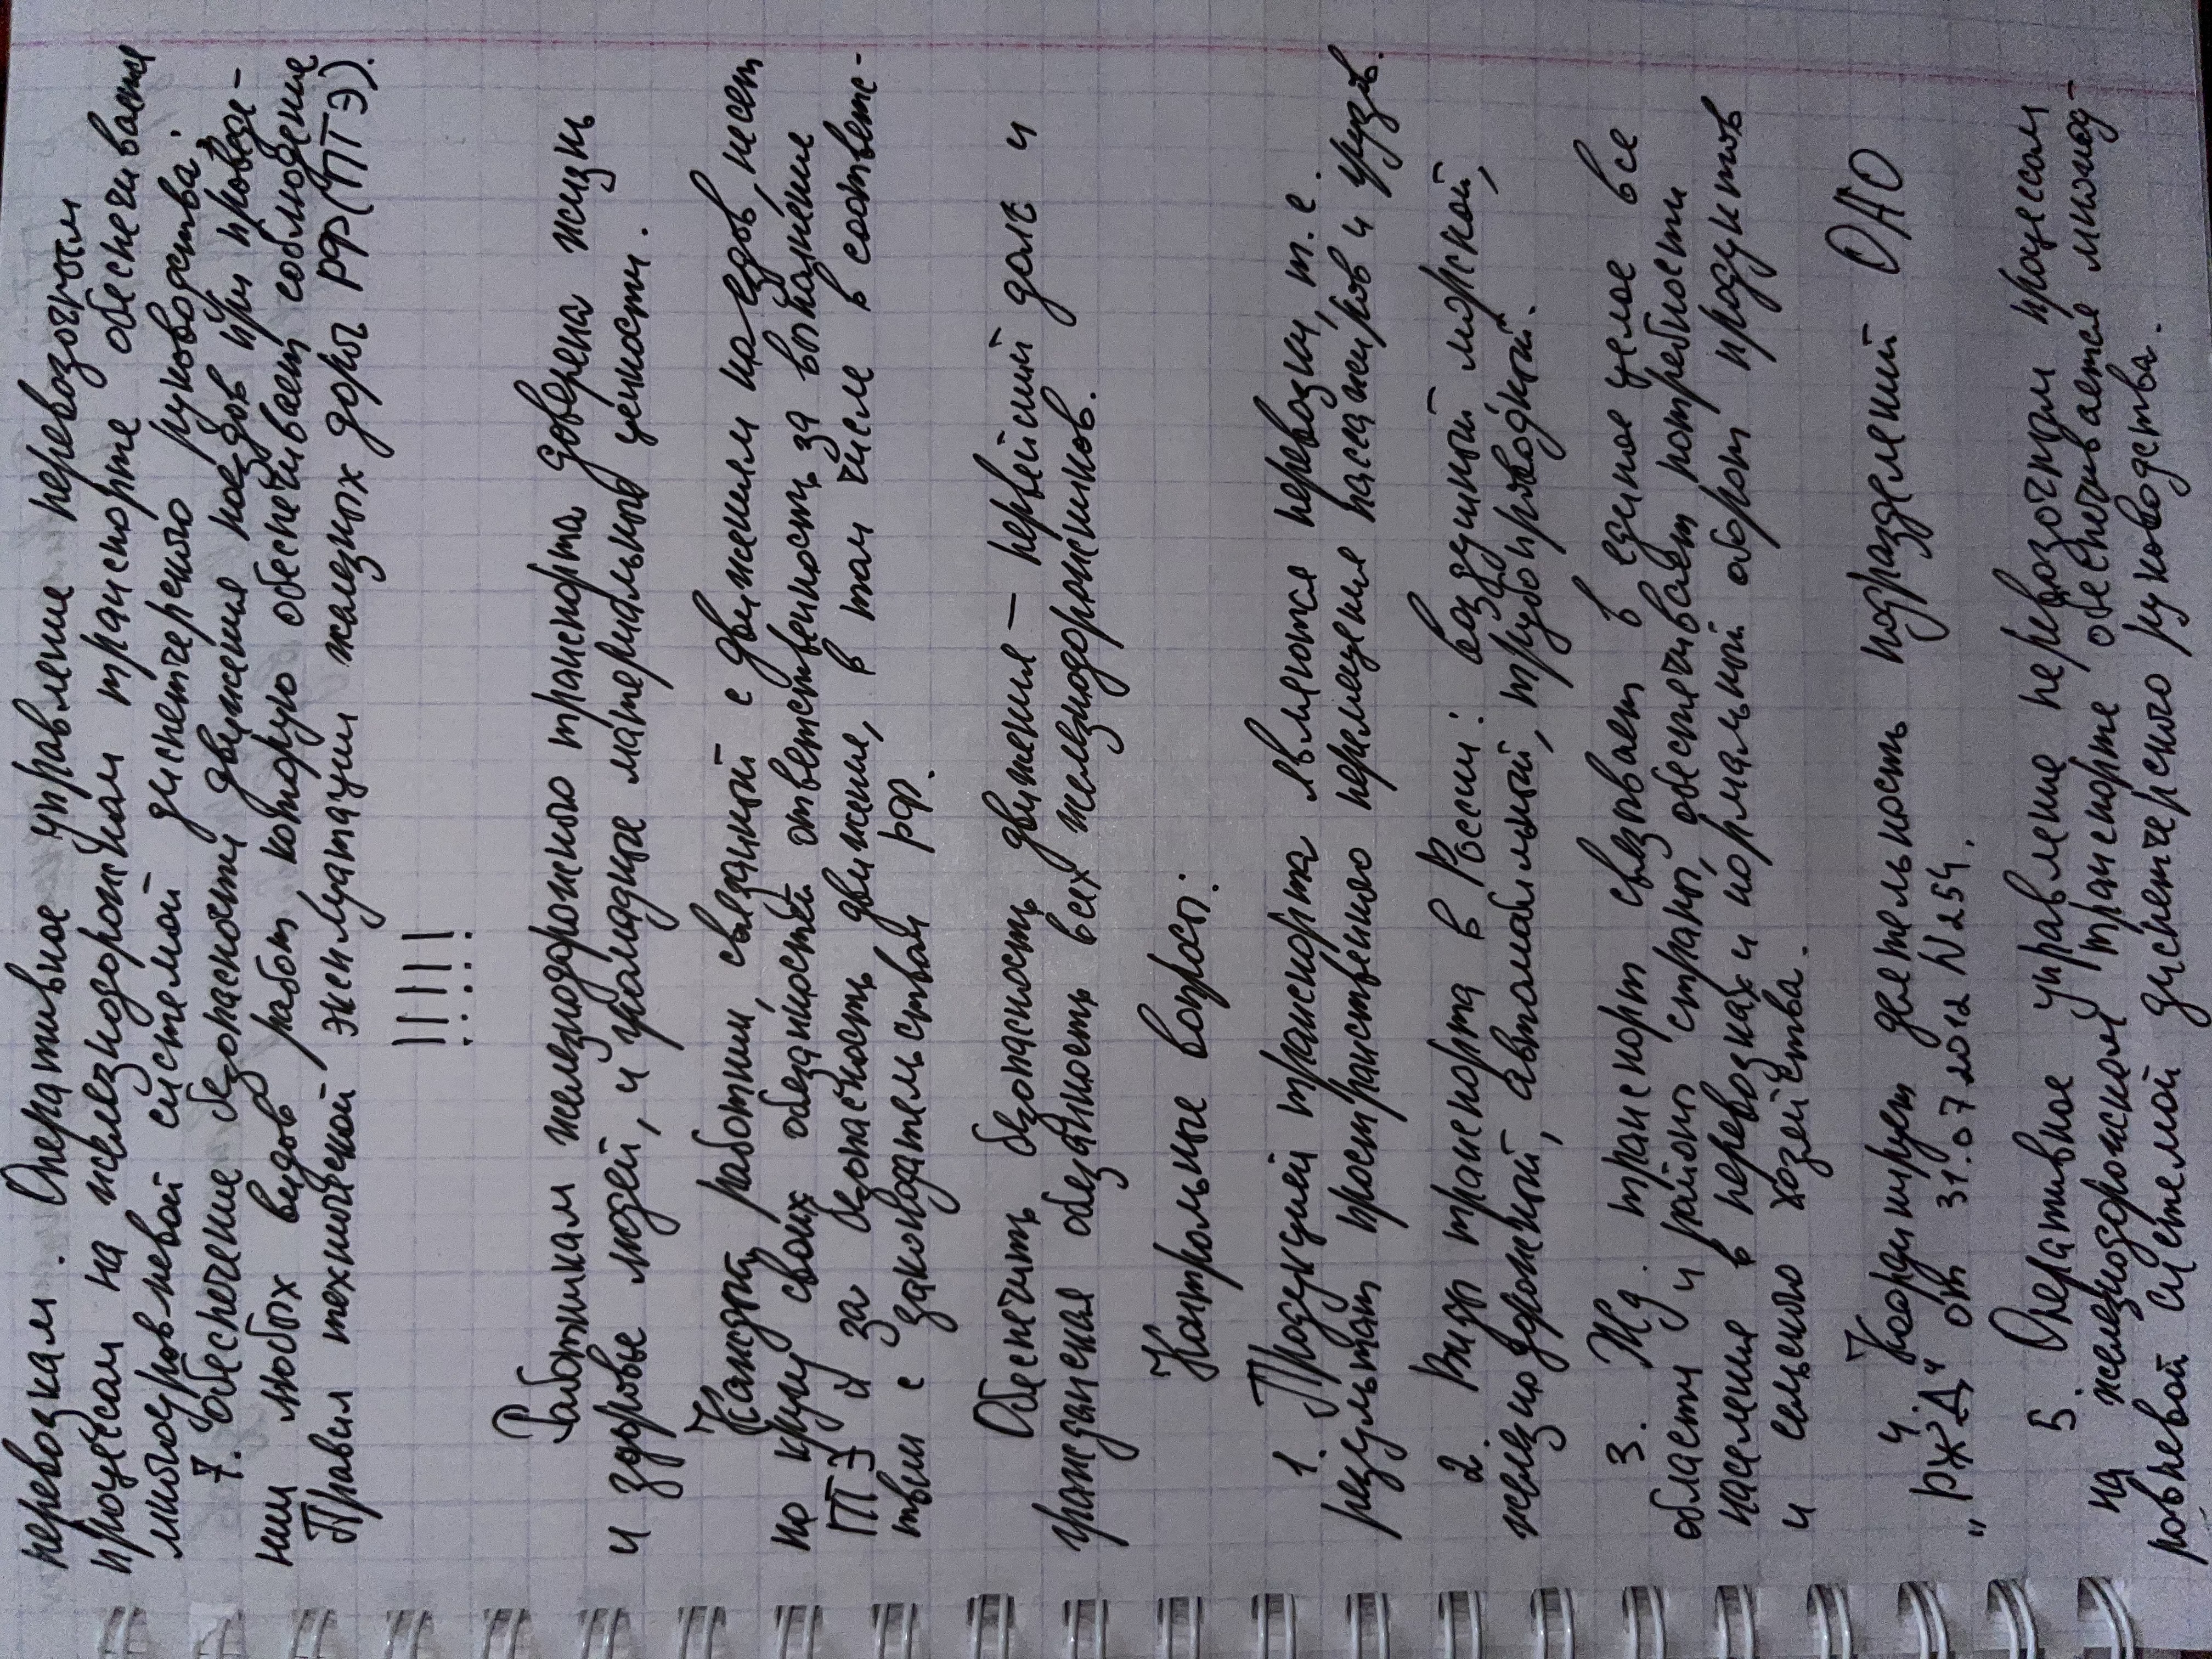 перевозкам. Оперативное управление перевозочным
процессом на железнодорожном транспорте обеспечивается
многоуровневой системой диспетчерского руководства.
7. Обеспечение безопасности движения поездов при проведе-
нии любых видов работ, которую обеспечивает соблюдение
Правил технической эксплуатации железных дорог РФ (ПТЭ).
!!!!!
Работникам железнодорожного транспорта доверена жизнь
и здоровье людей, и громадные материальные ценности.
Каждый работник, связанный с движением поездов, несет
по кругу своих обязанностей ответственность за выполнение
ПТЭ и за безопасность движение, в том числе в соответс-
твии с законодательством РФ.
Обеспечить безопасность движения – первейший долг и
гражданская обязанность всех железнодорожников.
Контрольные вопросы:
1. Продукцией транспорта являются перевозки, т. е.
результат пространственного перемещения пассажиров и грузов.
2. Виды транспорта в России: воздушный морской,
железнодорожный, автомобильный, трубопроводный.
3. Жд. транспорт связывает в единое целое все
области и районы страны, обеспечивает потребности
населения в перевозках и нормальный оборот продуктов
и сельского хозяйства.
4. Координирует деятельность подразделений ОАО
"РЖД" от 31.07.2012 N254.
5. Оперативное управление перевозочным процессом
на железнодорожном транспорте обеспечивается многоу-
ровневой системой диспетчерского руководства.